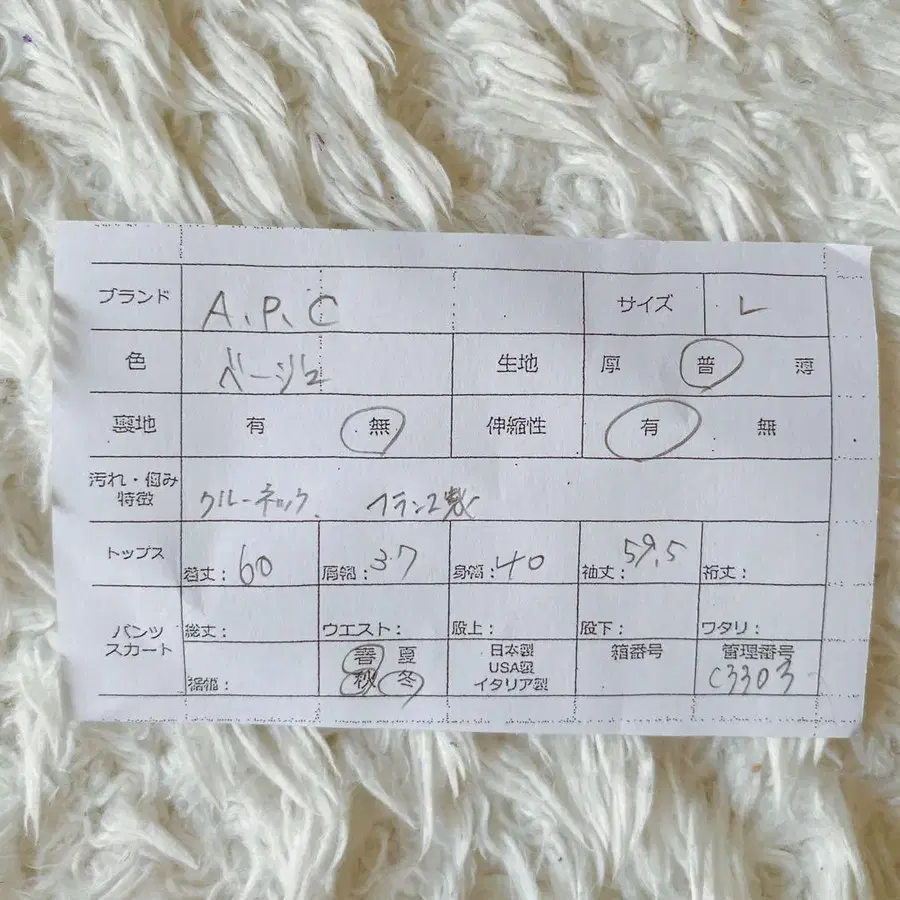 ブランド A.P.C サイズ L
色 ベージュ 生地 厚 普 薄
裏地 有 無 伸縮性 有 無
汚れ・傷み
特徴 クルーネック フランス製
トップス 着丈: 60 肩幅: 37 身幅: 40 袖丈: 59.5 裄丈:
パンツ
スカート 総丈: ウエスト: 股上: 股下: ワタリ:
裾幅: 春 夏 秋 冬 日本製 USA製 イタリア製 箱番号 管理番号 C3303